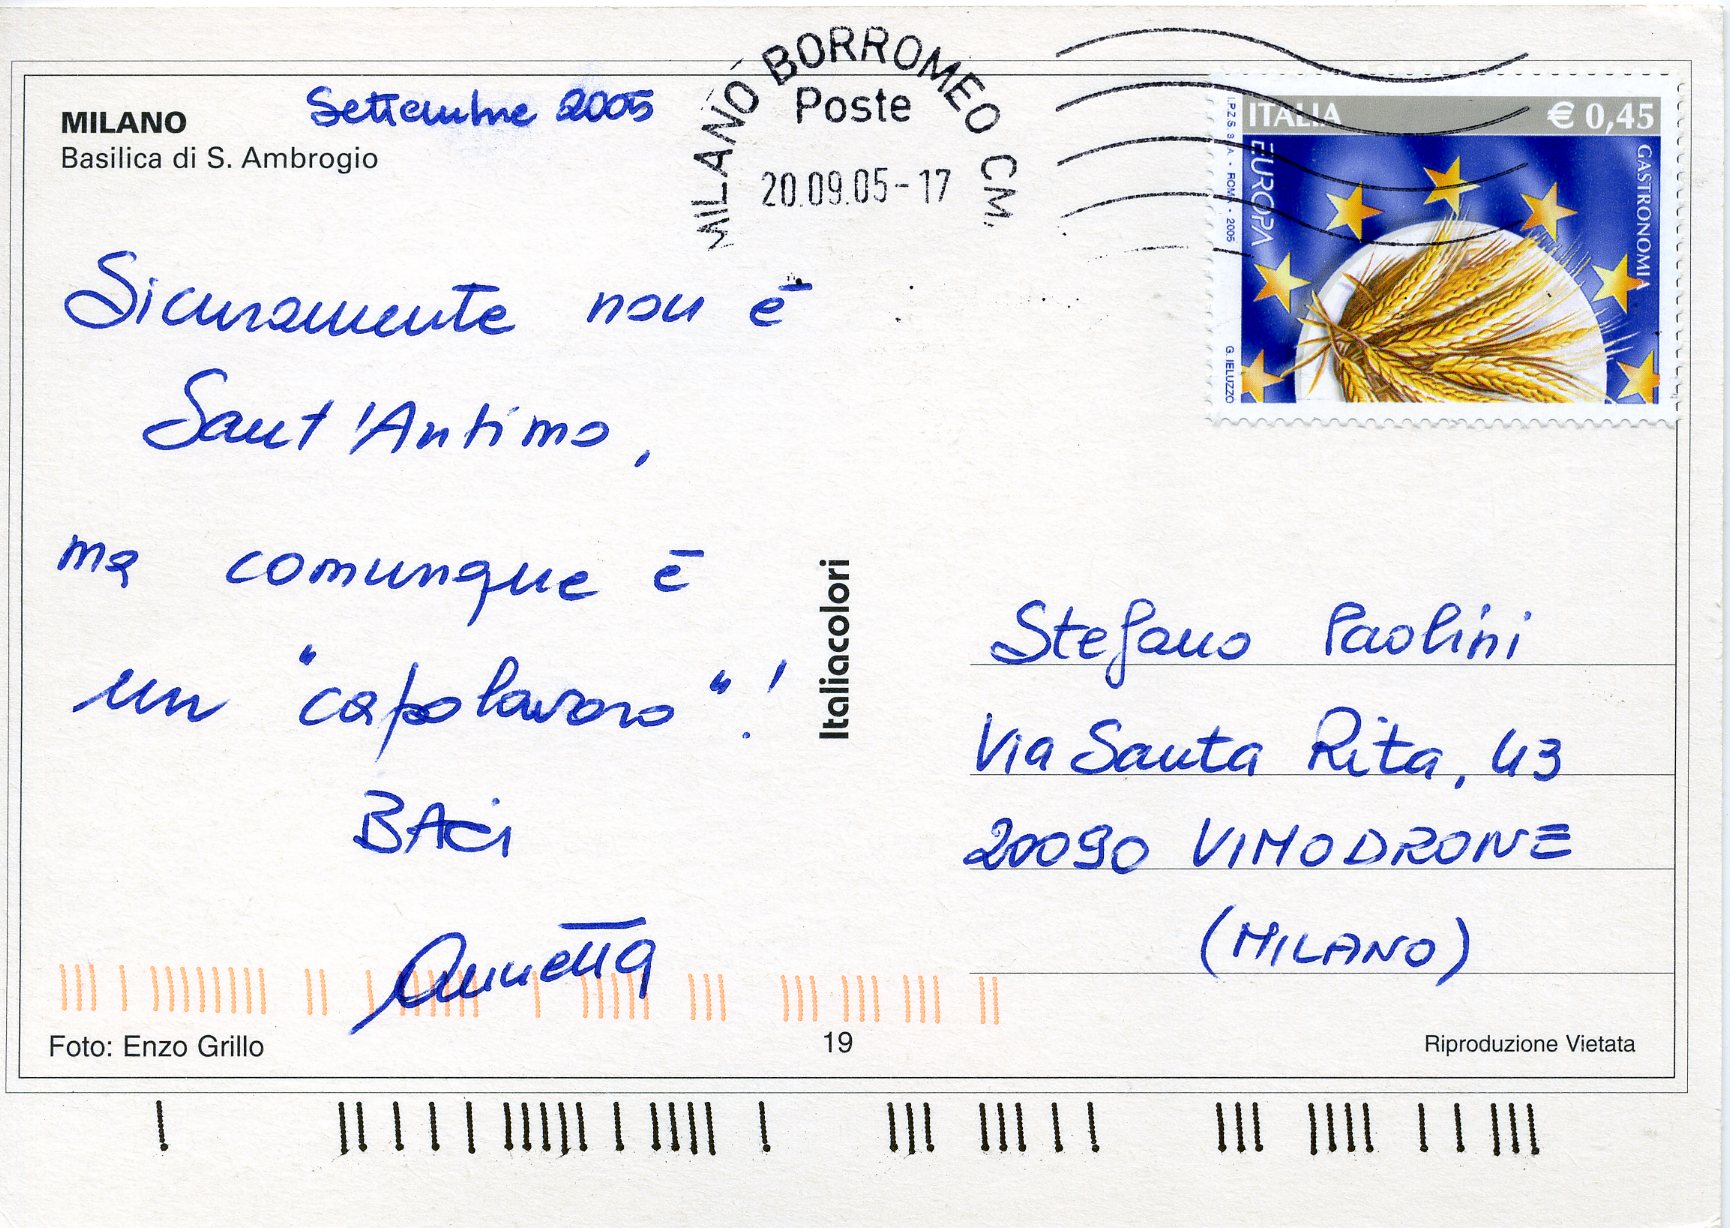 MILANO
Basilica di S. Ambrogio
Settembre 2005
MILANO BORROMEO CM.
Poste
20.09.05-17
ITALIA € 0,45
EUROPA
GASTRONOMIA
I.P.Z.S. S.p.A. - ROMA - 2005
G. IELUZZO
Sicuramente non è
Sant'Antimo,
ma comunque è
un "capolavoro"!
BACi
Annetta
Italiacolori
Stefano Paolini
Via Santa Rita, 43
20090 VIMODRONE
(MILANO)
Foto: Enzo Grillo
19
Riproduzione Vietata